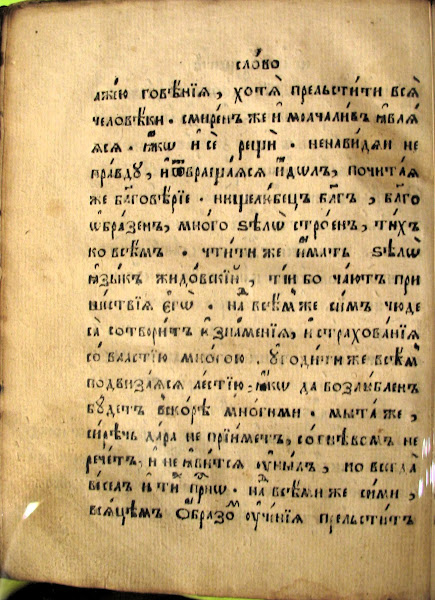 сло́во
лжею говѣ́нїѧ, хотѧ̀ прельсти́ти всѧ̀
человѣ́ки . смире́нъ же и҆ молчали́въ ꙗ҆влѧ́
ѧсѧ . ꙗ҆́кѡ и҆ сѐ рещѝ . ненави́дѧи не
пра́вду, и҆ ѿвраща́ѧсѧ и҆́дѡлъ, почита́ѧ
же благовѣ́рїе . нищелю́бецъ бла́гъ, бл҃го
ѡ҆́бразенъ, мно́го ѕѣлѡ̀ стро́енъ, ти́хъ
ко всѣ́мъ . чти́ти же и҆́мать ѕѣлѡ̀
ꙗ҆зы́къ жидо́вскїй, ті́и бо ча́ютъ при
ше́ствїѧ є҆гѡ̀ . над̾ всѣ́м же си́мъ чюде
са̀ сотвори́тъ и҆ зна́менїѧ, и҆ страхова́нїѧ
со вла́стїю мно́гою . ѹ҆годи́ти же всѣ́м
подвиза́ѧсѧ ле́стїю, ꙗ҆́кѡ да возлю́бленъ
бу́детъ вско́рѣ мно́гими . мыта́ же,
си́рѣчь да́ра не прїи́метъ, со гнѣ́вомъ не
рече́тъ, и҆ не ꙗ҆ви́тсѧ ѹ҆ны́лъ, но всегда̀
ве́селъ и҆ ти́хъ . над̾ всѣ́ми же си́ми,
всѧ́цѣмъ ѻ҆́бразомъ ѹ҆че́нїѧ прельсти́тъ